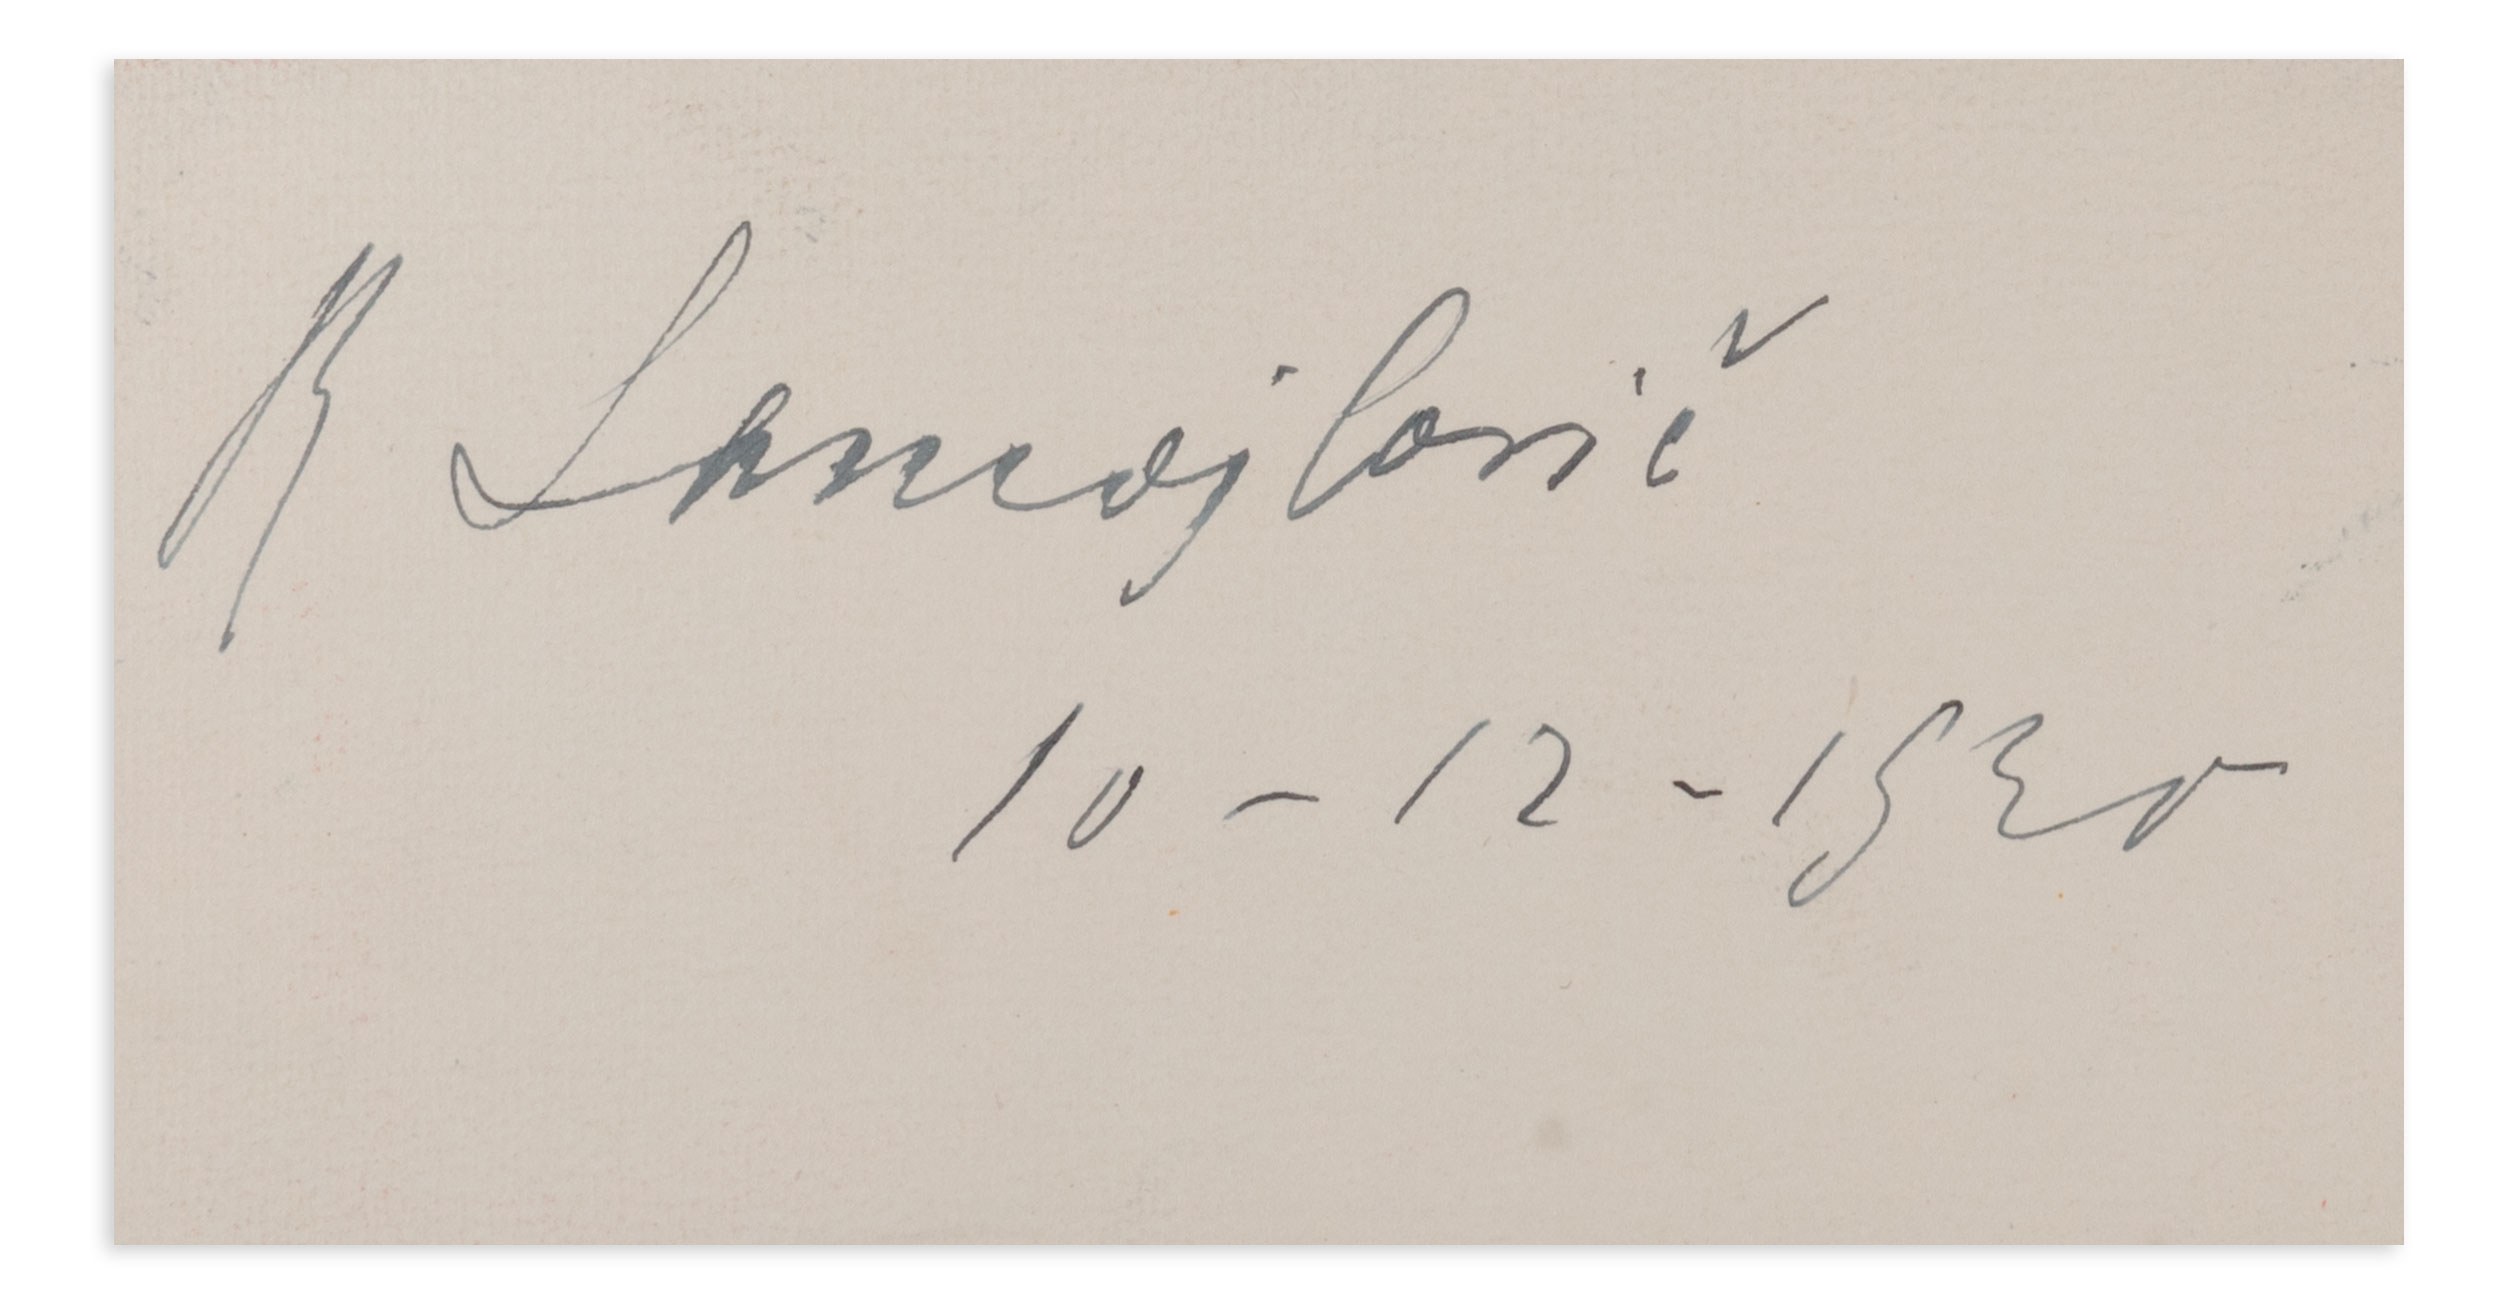 R Samojlovič
10 - 12 - 1930